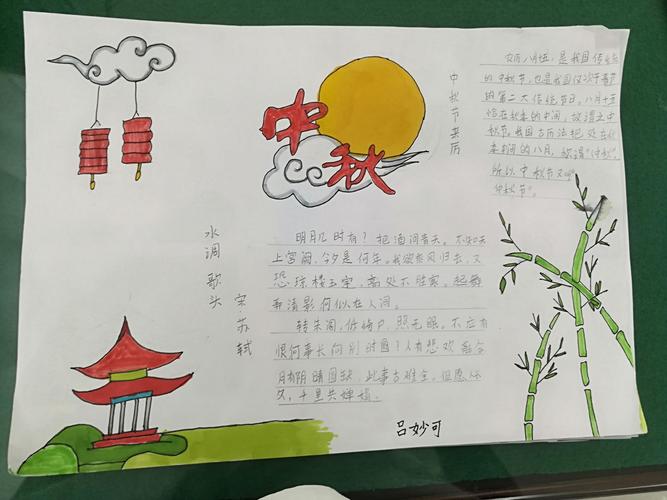 中秋
中秋节来历
农历八月十五,是我国传统
的中秋节,也是我国仅次于春节
的第二大传统节日。八月十五
恰在秋季的中间,故谓之中
秋节。我国古历法把处在秋
季中间的八月,称谓“仲秋”,
所以中秋节又叫
“仲秋节”。
水调歌头
宋·苏轼
明月几时有?把酒问青天。不知天
上宫阙,今夕是何年。我欲乘风归去,又
恐琼楼玉宇,高处不胜寒。起舞
弄清影何似在人间。
转朱阁,低绮户,照无眠。不应有
恨何事长向别时圆?人有悲欢离合
月有阴晴圆缺,此事古难全,但愿人长
久,千里共婵娟。
吕妙可